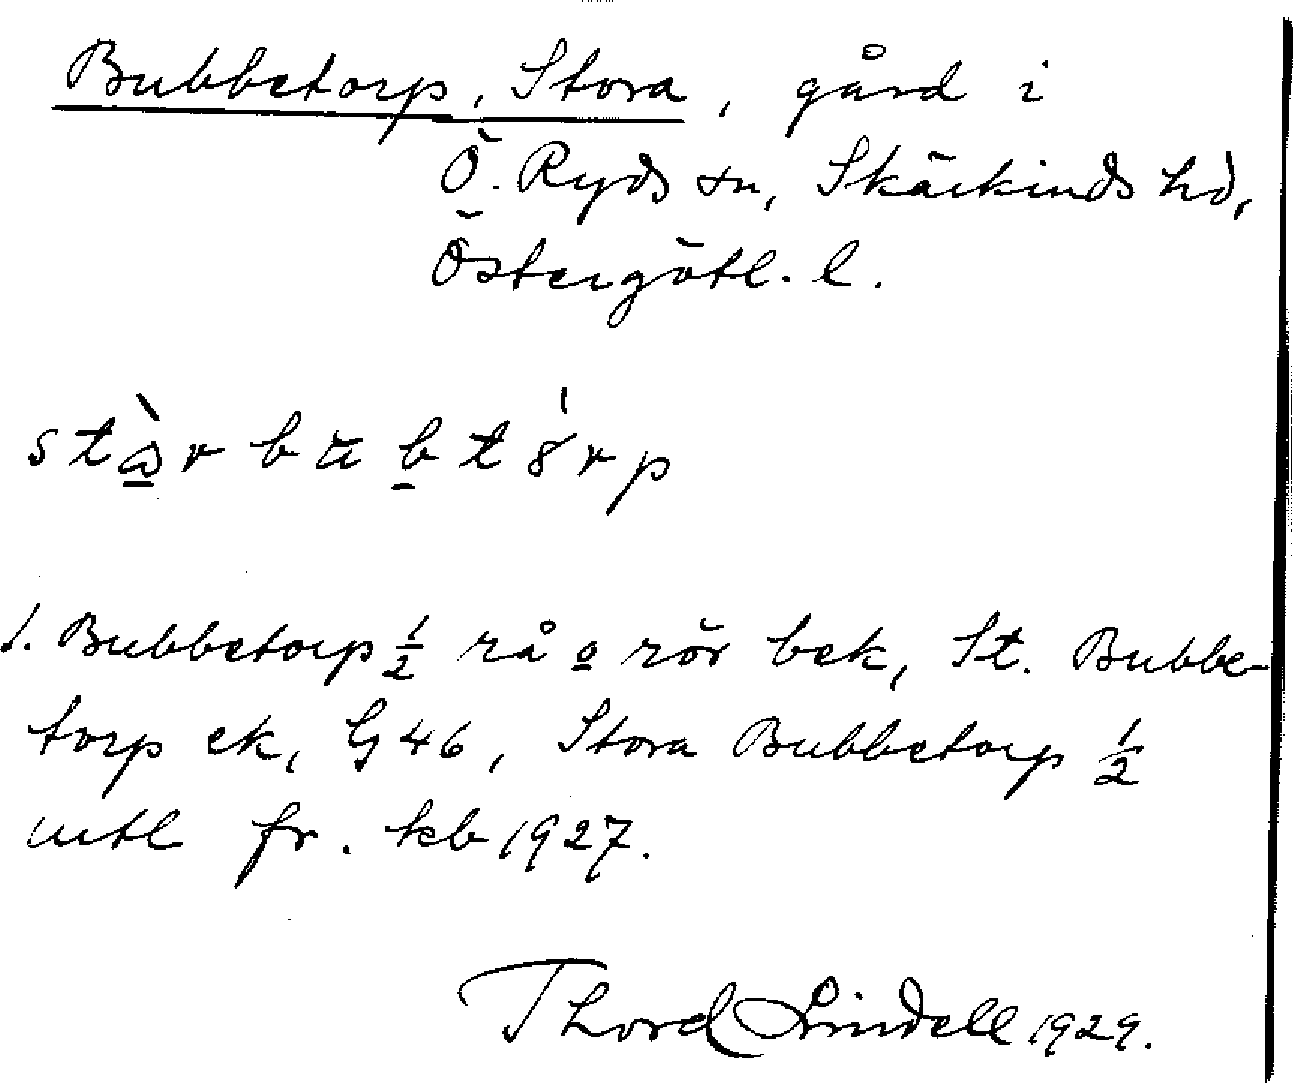 Bubbetorp, Stora, gård i
Ö. Ryds sn, Skärkinds hd,
Östergötl. l.
1. Bubbetorp 1/2 rå o rör bek, St. Bubbe-
torp ek, G 46, Stora Bubbetorp 1/2
mtl fr. kb 1927.
Thord Lindell 1929.